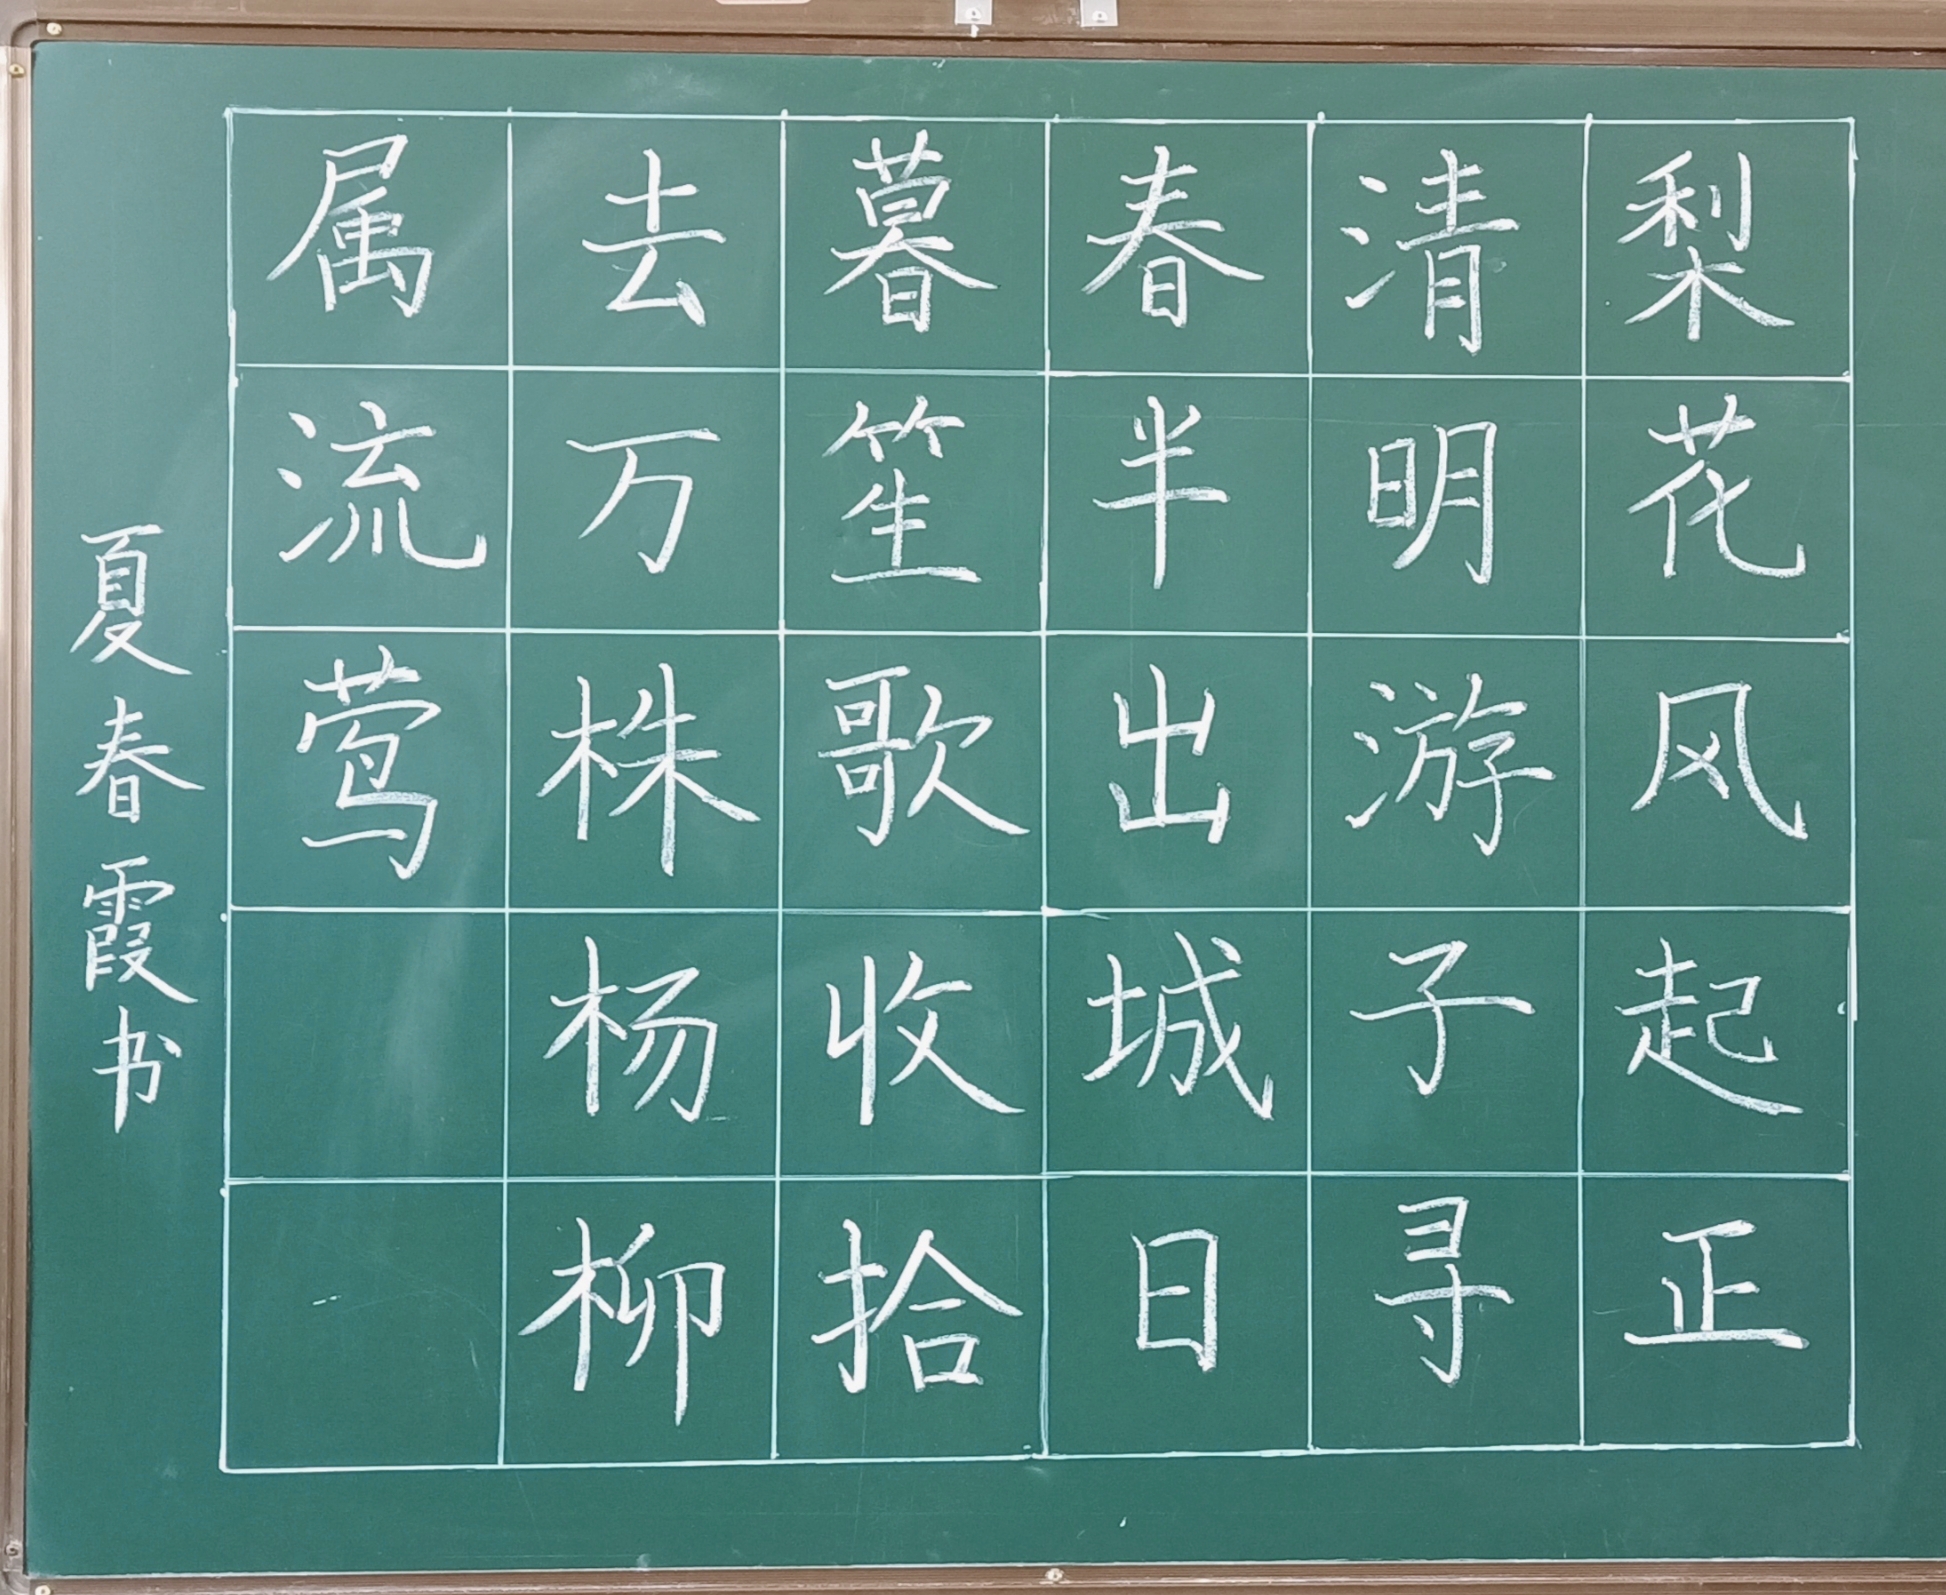 梨花风起正
清明游子寻
春半出城日
暮笙歌收拾
去万株杨柳
属流莺
夏春霞书